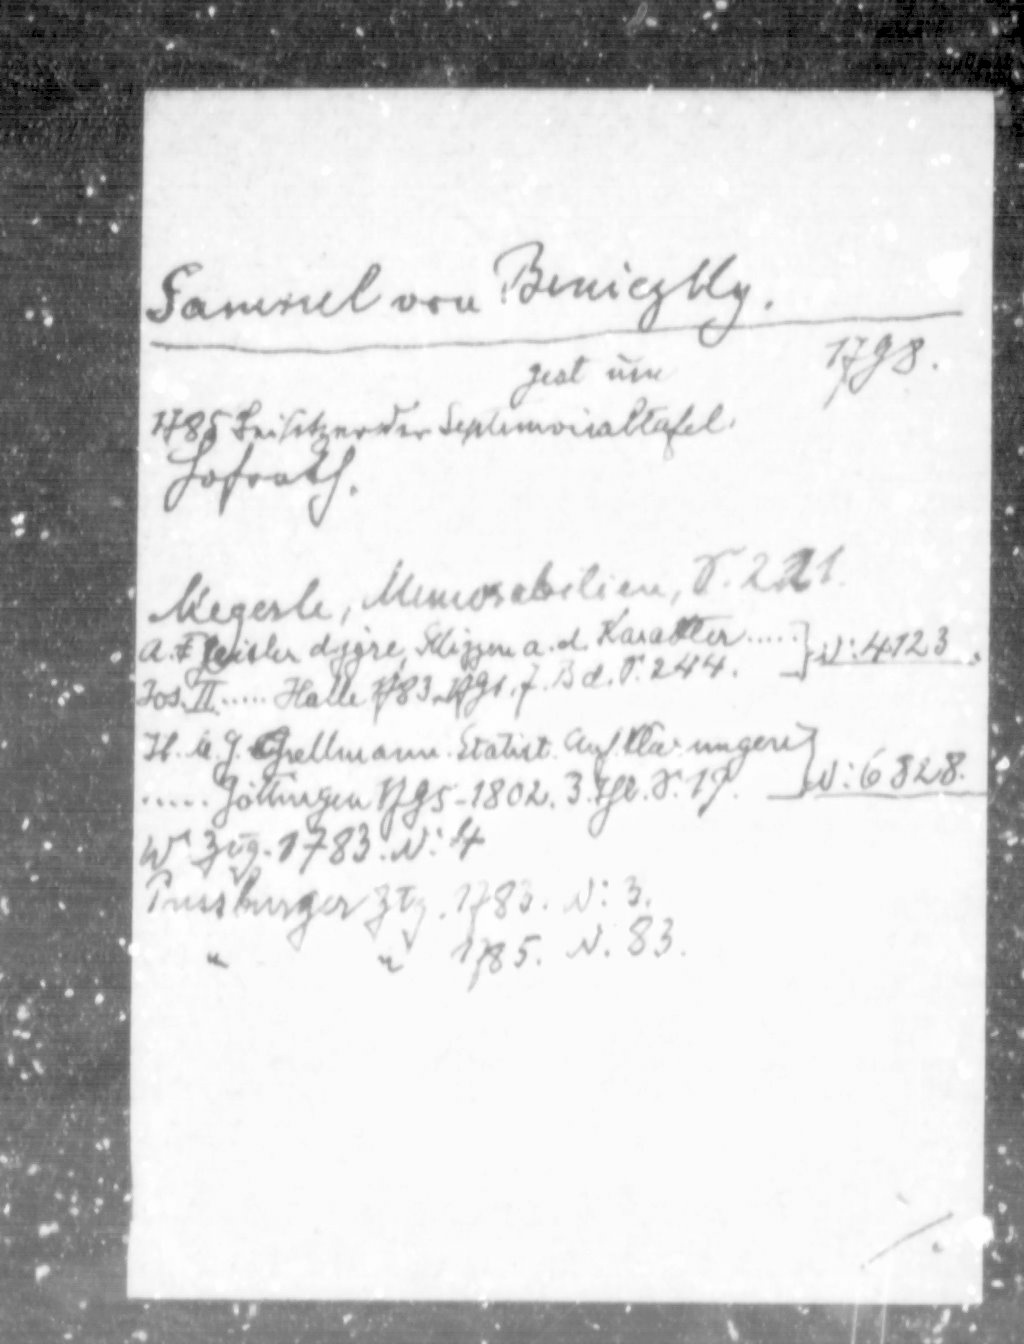 Samuel von Beniczky.
gest um 1798.
1785 Beisitzer der Septemviraltafel.
Hofrath.
Megerle, Memorabilien, S. 221.
A. F. Geisler d. jgre, Skizzen a. d. Karakter ..... N: 4123.
Jos. II ..... Halle 1783-1791. 7. Bd. S. 244.
H. M. G. Grellmann. Statist. Aufklärungen N: 6828.
..... Göttingen 1795-1802. 3. Thl. S. 17.
W Ztg. 1783. N: 4
Pressburger Ztg. 1783. N: 3.
" " 1785. N. 83.